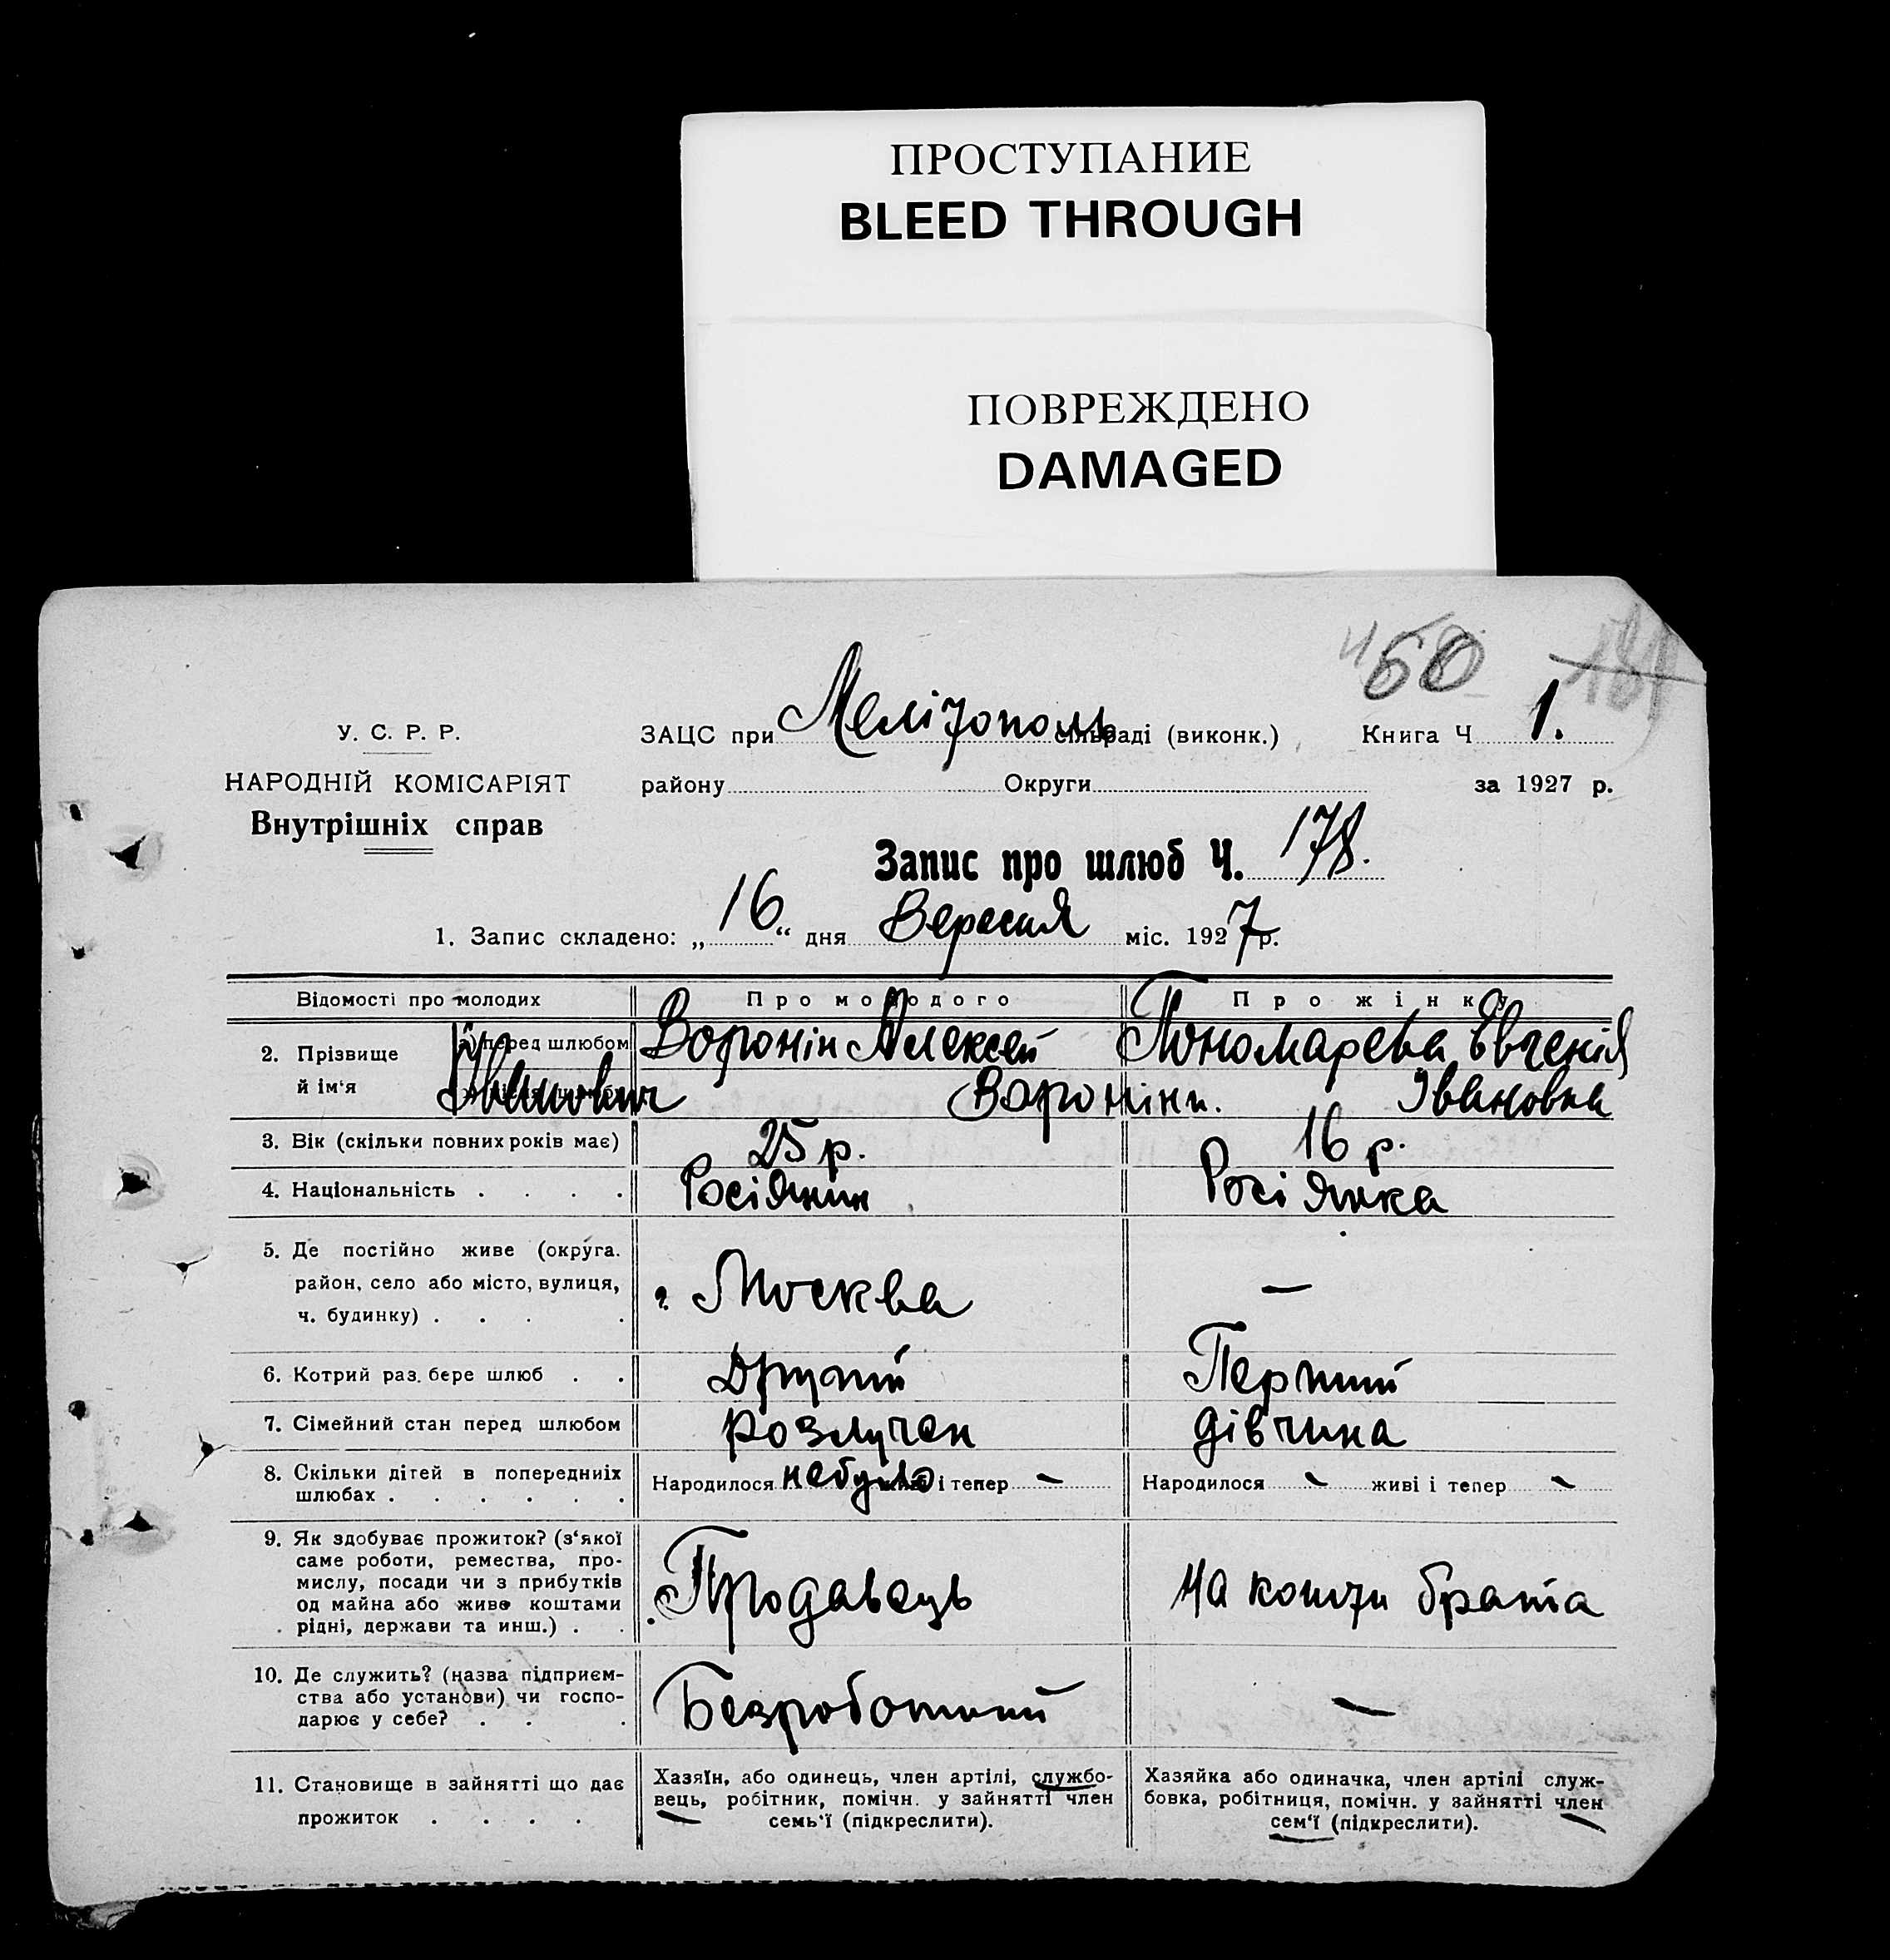 ПРОСТУПАНИЕ
BLEED THROUGH
ПОВРЕЖДЕНО
DAMAGED
У. С. Р. Р.
НАРОДНІЙ КОМІСАРІЯТ
Внутрішніх справ
ЗАЦС при Мелітополь сільраді (виконк.) Книга Ч 1.
району Округи за 1927 р.
Запис про шлюб Ч. 178.
1. Запис складено: „16“ дня Вересня міс. 1927 р.
Відомості про молодих Про молодого Про жінку
2. Прізвище й ім‘я
перед шлюбом Воронін Алексей Пономарева Євгенія
Вороніни. Івановна
3. Вік (скільки повних років має) 25 р. 16 р.
4. Національність . . . . Росіянин Росіянка
5. Де постійно живе (округа.
район, село або місто, вулиця, г. Москва —
ч. будинку) . . . .
6. Котрий раз. бере шлюб . . Другий Перший
7. Сімейний стан перед шлюбом розлучен дівчина
8. Скільки дітей в попередниіх
шлюбах . . . . . . Народилося небуло живі і тепер — Народилося — живі і тепер —
9. Як здобуває прожиток? (з‘якої
саме роботи, ремества, про-
мислу, посади чи з прибутків
од майна або живе коштами
рідні, держави та инш.) . .
Продавець На кошти брата
10. Де служить? (назва підприєм-
ства або установи) чи госпо-
дарює у себе? . . .
Безработний —
11. Становище в зайнятті що дає
прожиток . . . .
Хазяїн, або одинець, член артілі, службо-
вець, робітник, помічн. у зайнятті член
семь‘ї (підкреслити).
Хазяйка або одиначка, член артілі служ-
бовка, робітниця, помічн. у зайнятті член
сем‘ї (підкреслити).